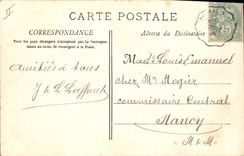 CARTE POSTALE
CORRESPONDANCE
Tous les pays étrangers n'acceptent pas la Correspondance
au recto. Se renseigner à la Poste.
Adresse du Destinataire
Amitiés à tous
J & L
Mad. Louis Emanuel
chez Mr Hogier
commissaire Central
Nancy
M & M